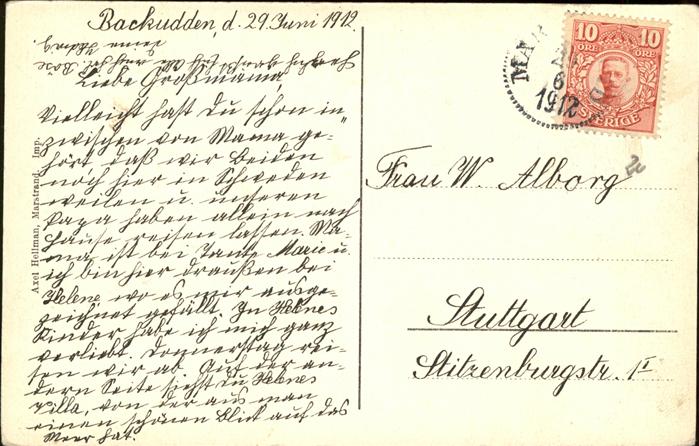 Backudden, d. 29. Juni 1912.
Liebe Großmama,
Vielleicht hast Du schon in„
zwischen von Mama ge-
hört daß wir beiden
noch hier in Schweden
weilen u. unseren
Papa haben allein nach
Hause reisen lassen. Ma-
ma ist bei Tante Marie u.
ich bin hier draußen bei
Helene, wo es mir ausge-
zeichnet gefällt. In Helenes
Kinder habe ich mich ganz
verliebt. Donnerstag rei-
sen wir ab. Auf der an-
dern Seite siehst Du Helenes
Villa, von der aus man
einen schönen Blick auf das
Meer hat.
Deine Hedwig.
Axel Hellman, Marstrand, Imp.
10 10
ÖRE ÖRE
SVERIGE
MAR
6
1912
Frau W. Alborg
Stuttgart
Stitzenburgstr. 1I